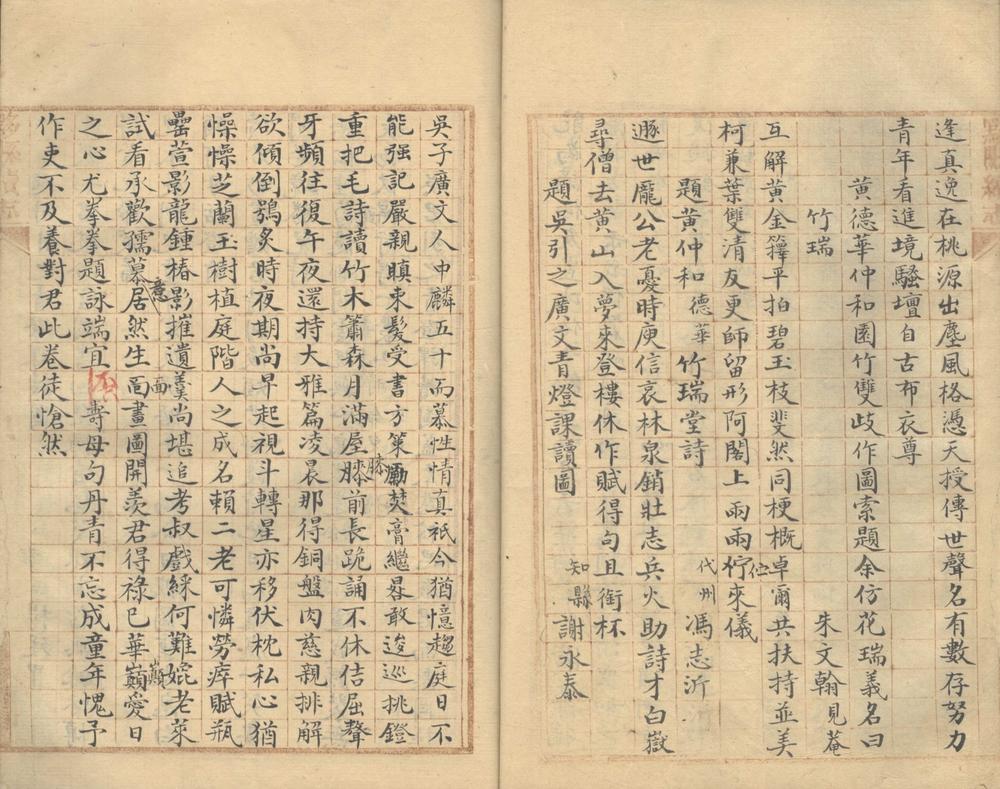 逢真逸在桃源出塵風格憑天授傳世聲名有數存努力
青年看進境騷壇自古布衣尊
黃德華仲和園竹雙歧作圖索題余仿花瑞義名曰
竹瑞
朱文翰見菴
互解黃金籜平拍碧玉枝斐然同梗概卓爾共扶持並美
柯兼葉雙清友更師留形阿閣上兩兩佇來儀
題黃仲和德華竹瑞堂詩
代州馮志沂
遯世龐公老憂時庾信哀林泉銷壯志兵火助詩才白嶽
尋僧去黃山入夢來登樓休作賦得句且銜杯
題吳引之廣文青燈課讀圖
知縣謝永泰
吳子廣文人中麟五十而慕性情真祇今猶憶趨庭日不
能强記嚴親瞋束髮受書方策勵焚膏繼晷敢逡巡挑鐙
重把毛詩讀竹木蕭森月滿屋膝前長跪誦不休佶屈聱
牙頻往復午夜還持大雅篇凌晨那得銅盤肉慈親排解
欲傾倒鴞炙時夜期尚早起視斗轉星亦移伏枕私心猶
懆懆芝蘭玉樹植庭階人之成名賴二老可憐勞瘁賦瓶
罍萱影龍鍾椿影摧遺羹尚堪追考叔戲綵何難媲老萊
試看承歡孺慕意居然生面畫圖開羨君得祿已華巔愛日
之心尤拳拳題詠端宜壽母句丹青不忘成童年愧予
作吏不及養對君此卷徒愴然